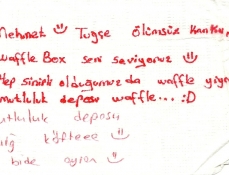 Mehmet Tuğçe ölümsüz Kankam
Waffle Box seni seviyoruz
Hep sinirli olduğumuzda waffle yiyoruz
mutluluk deposu waffle... :D
mutluluk deposu
çiğ köfteee
bide ayran